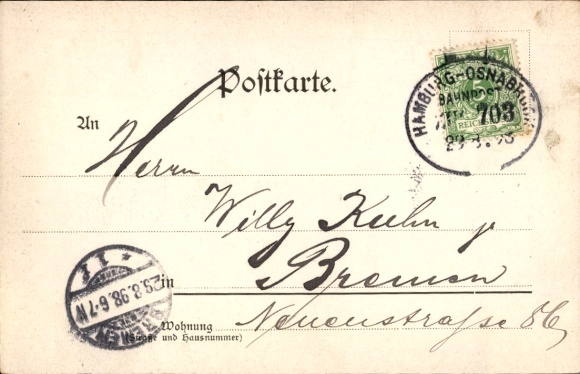 Postkarte.
HAMBURG-OSNABRÜCK
BAHNPOST
ZUG 703
29.8.98
REICHSPOST
An
Herrn
Willy Kuhn jr
in Bremen
Wohnung Neuenstraße
(Straße und Hausnummer)
BREMEN
29.8.98.6-7N
* 1 f